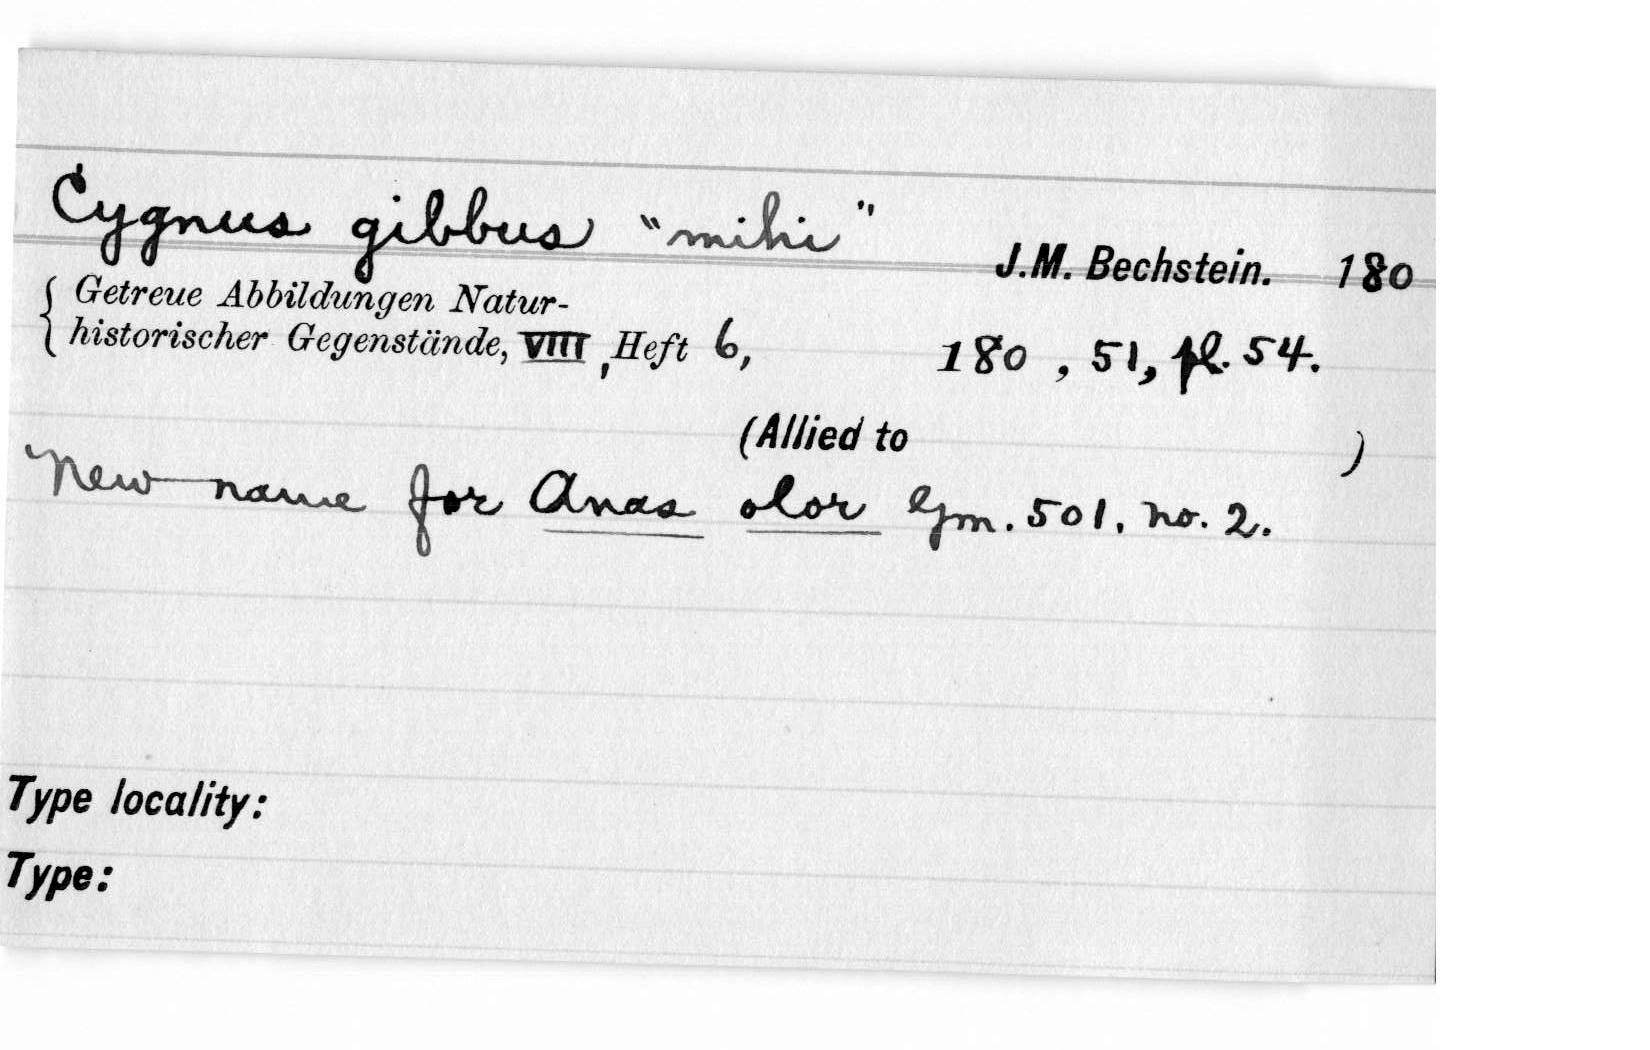 Cygnus gibbus "mihi"
J.M. Bechstein. 180
{ Getreue Abbildungen Natur-
historischer Gegenstände, VIII, Heft 6, 180 , 51, pl. 54.
(Allied to )
New name for Anas olor Gm. 501. no. 2.
Type locality:
Type: